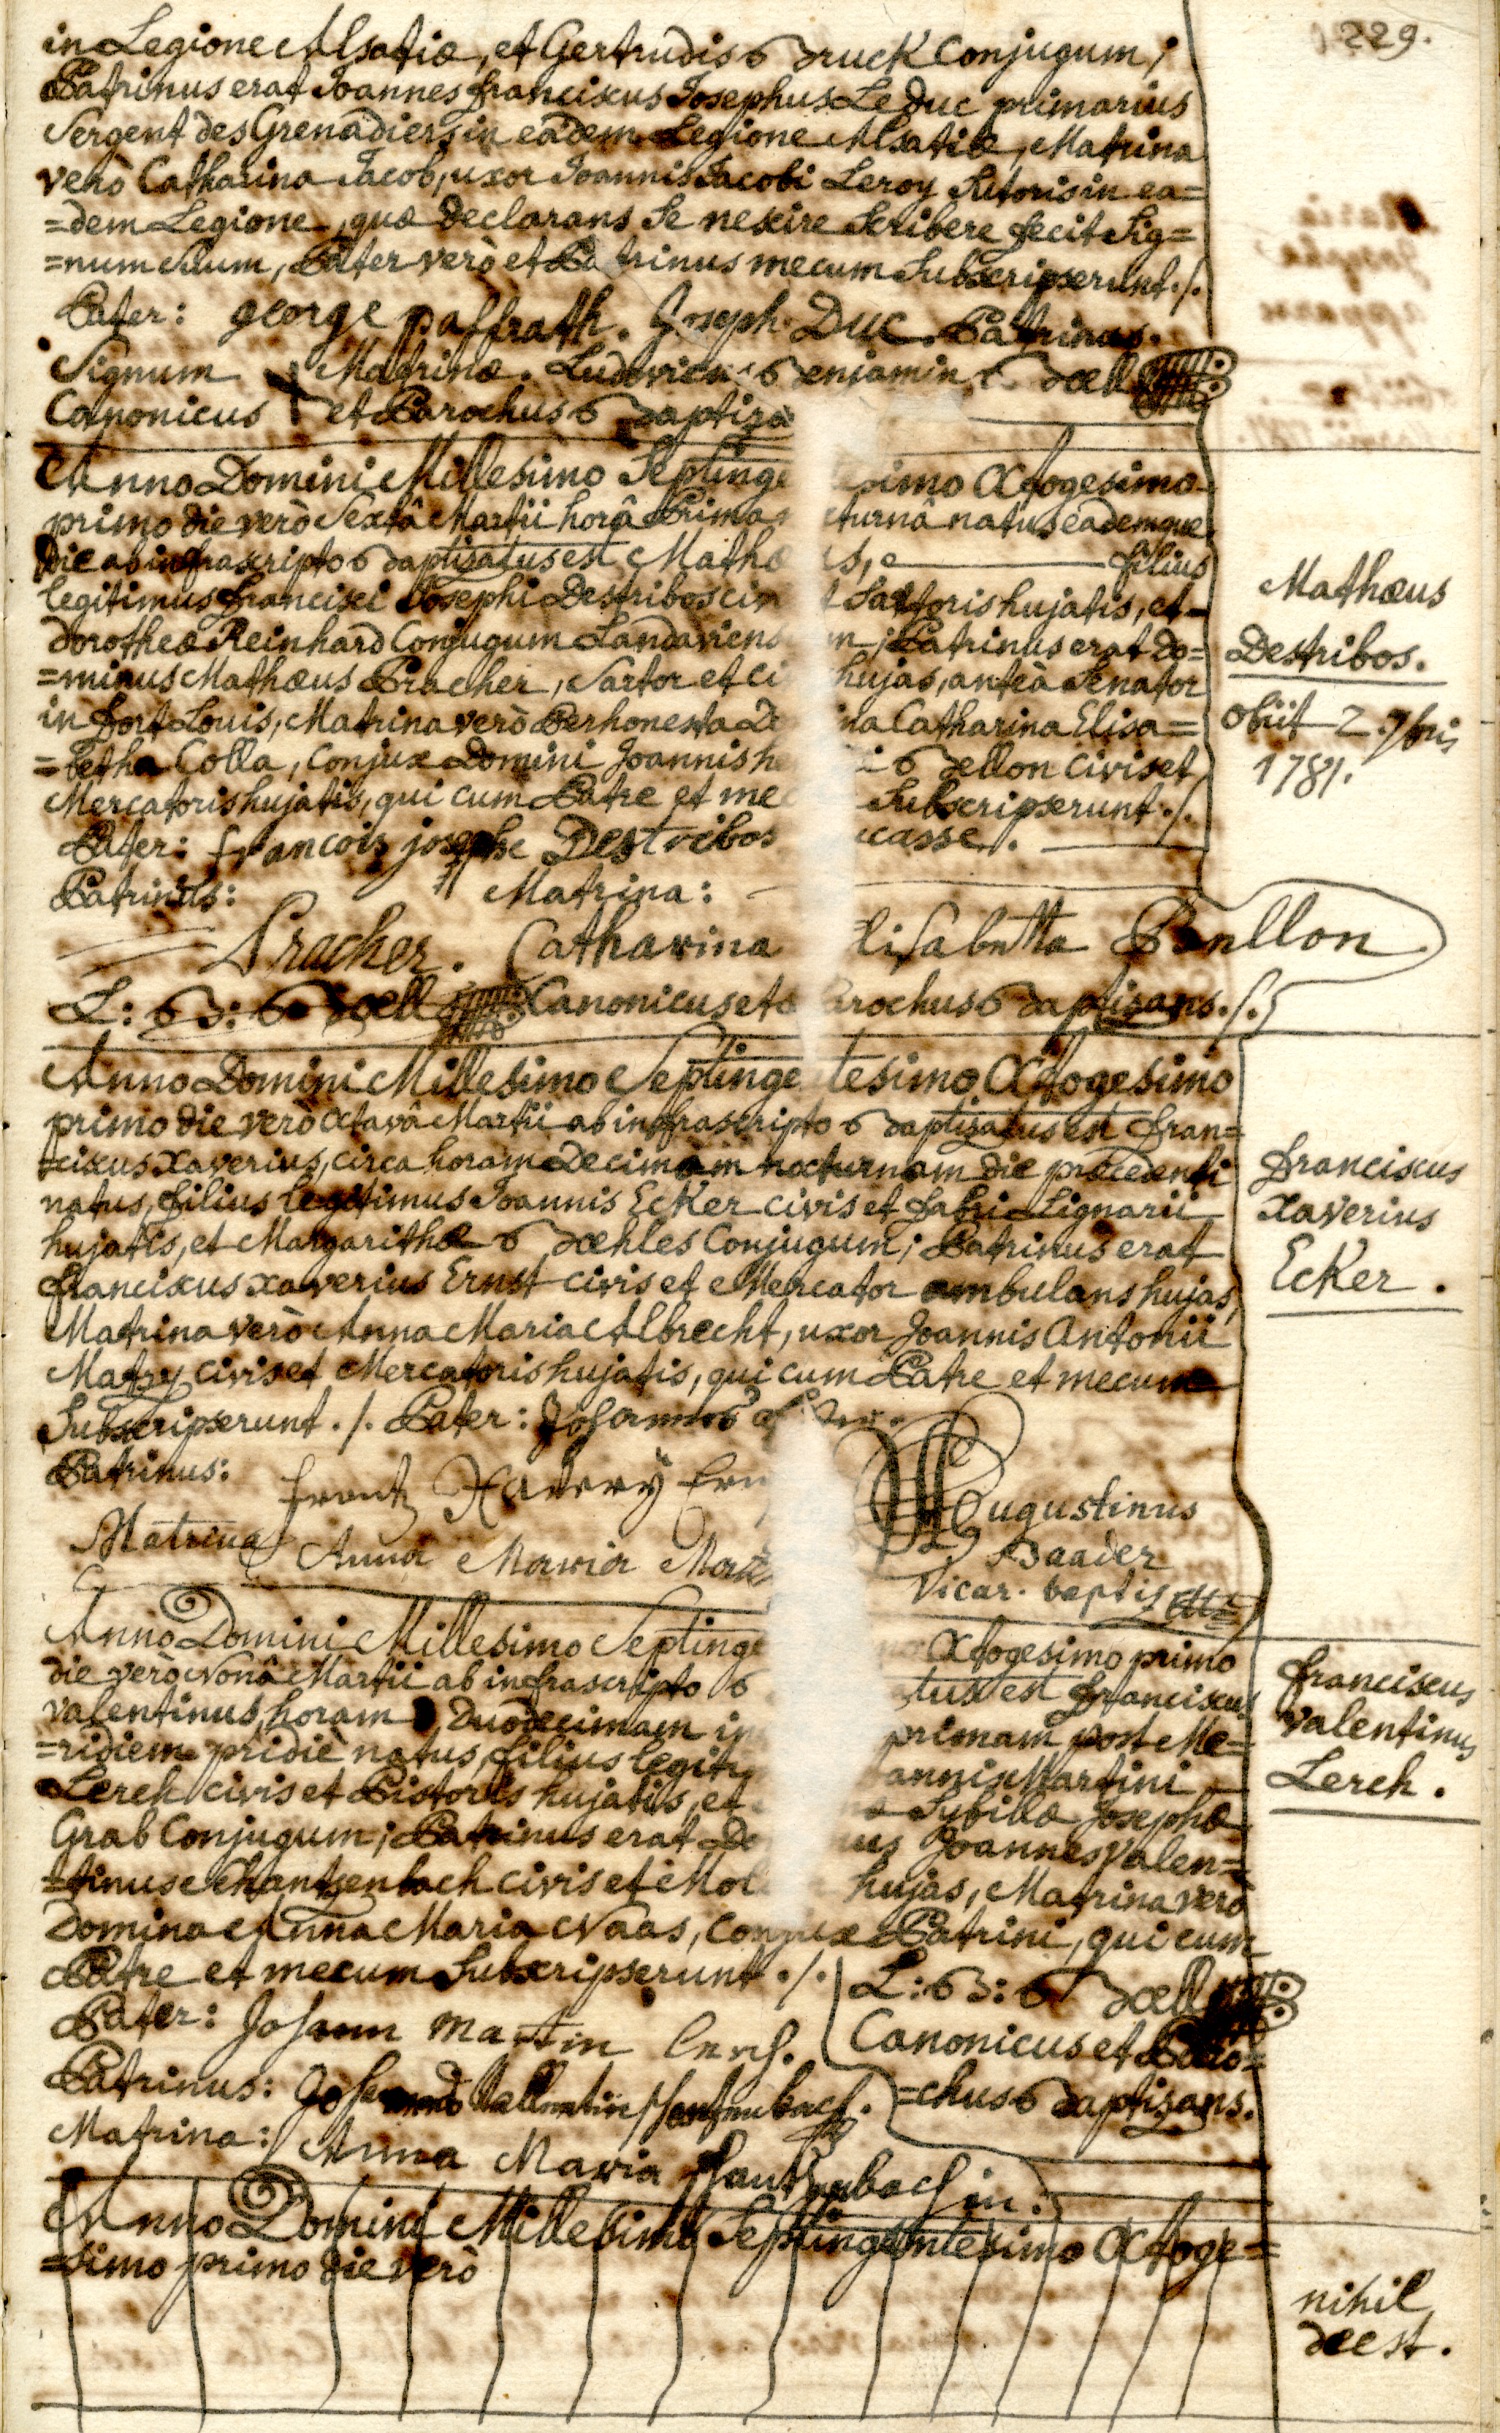 229.
in Legione Alsatiæ, et Gertrudis Bruck Conjugum;
Patrinus erat Joannes Franciscus Josephus Le Duc primarius
Sergent des Grenadiers in eâdem Legione Alsatiæ, Matrina
verò Catharina Jacob, uxor Joannis Jacobi Leroy Sutoris in ea=
=dem Legione, quæ declarans se nescire scribere fecit Sig=
=num suum, Pater verò et Patrinus mecum Subscripserunt ./.
Pater: george paffrath. Joseph Duc. Patrinus.
Signum Matrinæ. Ludovicus Benjamin Boell
Canonicus et Parochus Baptiza
Anno Domini Millesimo Septinge esimo Octogesimo
primo die verò Sextâ Martii horâ Prima cturnâ natus eademque
die ab infrascripto Baptizatus est Mathæ s, filius
legitimus Francisci Josephi Destribos ci t Sartoris hujatis, et
Dorotheæ Reinhard Conjugum Landaviens m; Patrinus erat Do=
=minus Mathæus Pracher, Sartor et ci hujas, anteà Senator
in Fort Louis, Matrina verò Perhonesta Do ina Catharina Elisa=
=betha Colla, Conjux Domini Joannis he i Bellon civis et
Mercatoris hujatis, qui cum Patre et me Subscripserunt ./.
Pater: francois josephe Destribos casse.
Patrinus: Matrina:
Pracher. Catharina lisabetta Bellon
L: B: Boell Canonicus et Parochus Baptizans ./.
Mathæus
Destribos.
obiit 2. 7bris
1781.
Anno Domini Millesimo Septinge tesimo Octogesimo
primo die verò octavâ Martii ab infrascripto Baptizatus est Fran=
=ciscus Xaverius, circa horam Decimam nocturnam die præcedenti
natus, filius legitimus Joannis Ecker civis et Fabri Lignarii
hujatis, et Margarithæ Boehles Conjugum; Patrinus erat
Franciscus xaverius Ernst civis et Mercator ambulans hujas,
Matrina verò Anna Maria Albrecht, uxor Joannis Antonii
Matry civis et Mercatoris hujatis, qui cum Patre et mecum
Subscripserunt ./. Pater: Johannes
Patrinus: frantz Xavery Ern
Matrina Anna Maria
Augustinus
Baader
Vicar. baptiz
Franciscus
Xaverius
Ecker.
Anno Domini Millesimo Septinge Octogesimo primo
die verò Nonâ Martii ab infrascripto B tus est Franciscus
Valentinus, horam Duodecimam in primam post Me=
=ridiem pridiè natus, filius legiti annis Martini
Lerch civis et Pistoris hujatis, et Sybillæ Josephæ
Grab Conjugum; Patrinus erat Do us Joannes Valen=
=tinus Schantzenbach civis et Mol hujas, Matrina verò
Domina Anna Maria Naas, Conjux Patrini, qui cum
Patre et mecum Subscripserunt ./.
L: B: Boell
Canonicus et Paro=
=chus Baptizans.
Pater: Johann Martin Lerch.
Patrinus: Johannes Vallentin Schantzenbach.
Matrina: Anna Maria Schantzenbachin.
Franciscus
Valentinus
Lerch.
Anno Domini Millesimo Septingentesimo Octoge=
=simo primo die verò
nihil
deest.